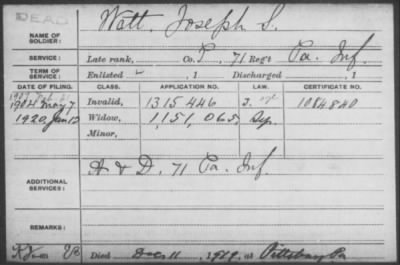 DEAD
NAME OF SOLDIER: Watt. Joseph S.
SERVICE: Late rank, Co. 71 Reg't Pa. Inf.
TERM OF SERVICE: Enlisted , 1 Discharged , 1
DATE OF FILING. CLASS. APPLICATION NO. LAW. CERTIFICATE NO.
1904 May 7 Invalid, 1315446 1084840
1920, Jan 12 Widow, 1,151,065,
Minor,
ADDITIONAL SERVICES: A & D. 71 Pa. Inf.
REMARKS:
Died Dec 11, 1919, at Pittsburg Pa